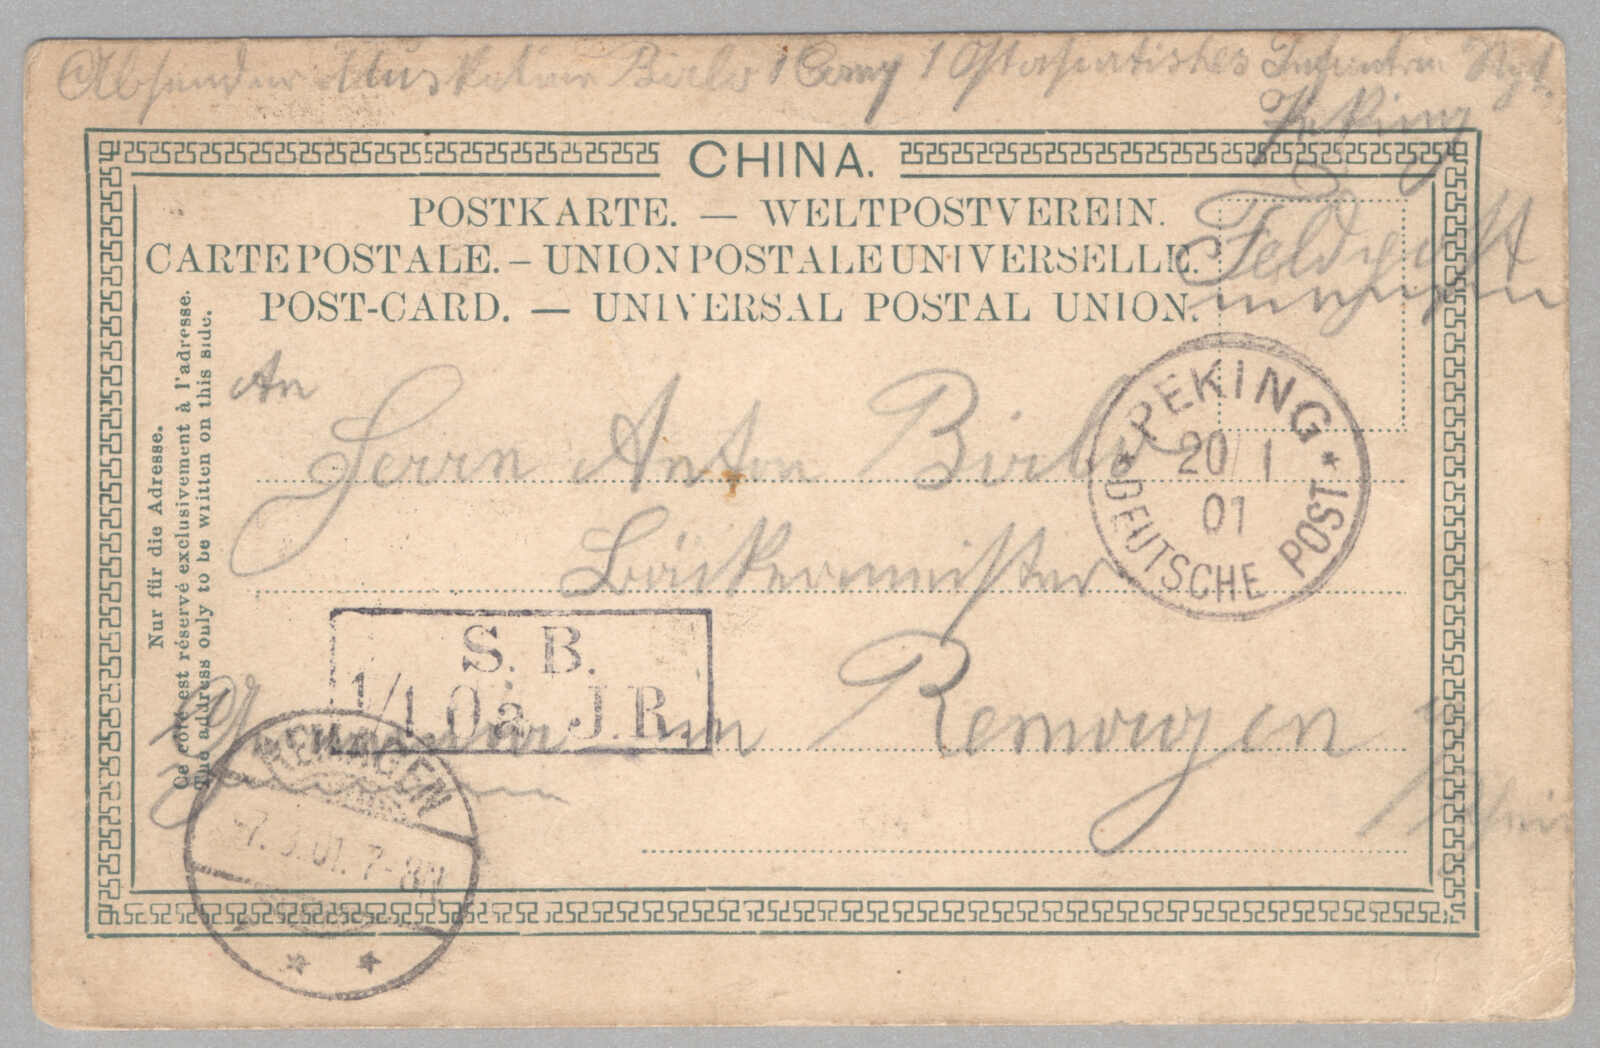 Absender Musketier Birlo 1 Comp 1 Ostasiatisches Infantrie Rgt.
Peking
CHINA.
Feldpost
POSTKARTE. — WELTPOSTVEREIN.
CARTE POSTALE. – UNION POSTALE UNIVERSELLE.
POST-CARD. — UNIVERSAL POSTAL UNION.
Nur für die Adresse.
Ce côté est réservé exclusivement à l'adresse.
The address only to be written on this side.
An
Herrn Anton
Bäckermeister
in Remagen
a/Rhein
PEKING
20/1
01
DEUTSCHE POST
S. B.
1/1. Oa. J. R.
REMAGEN
-7.3.01. 7-8N